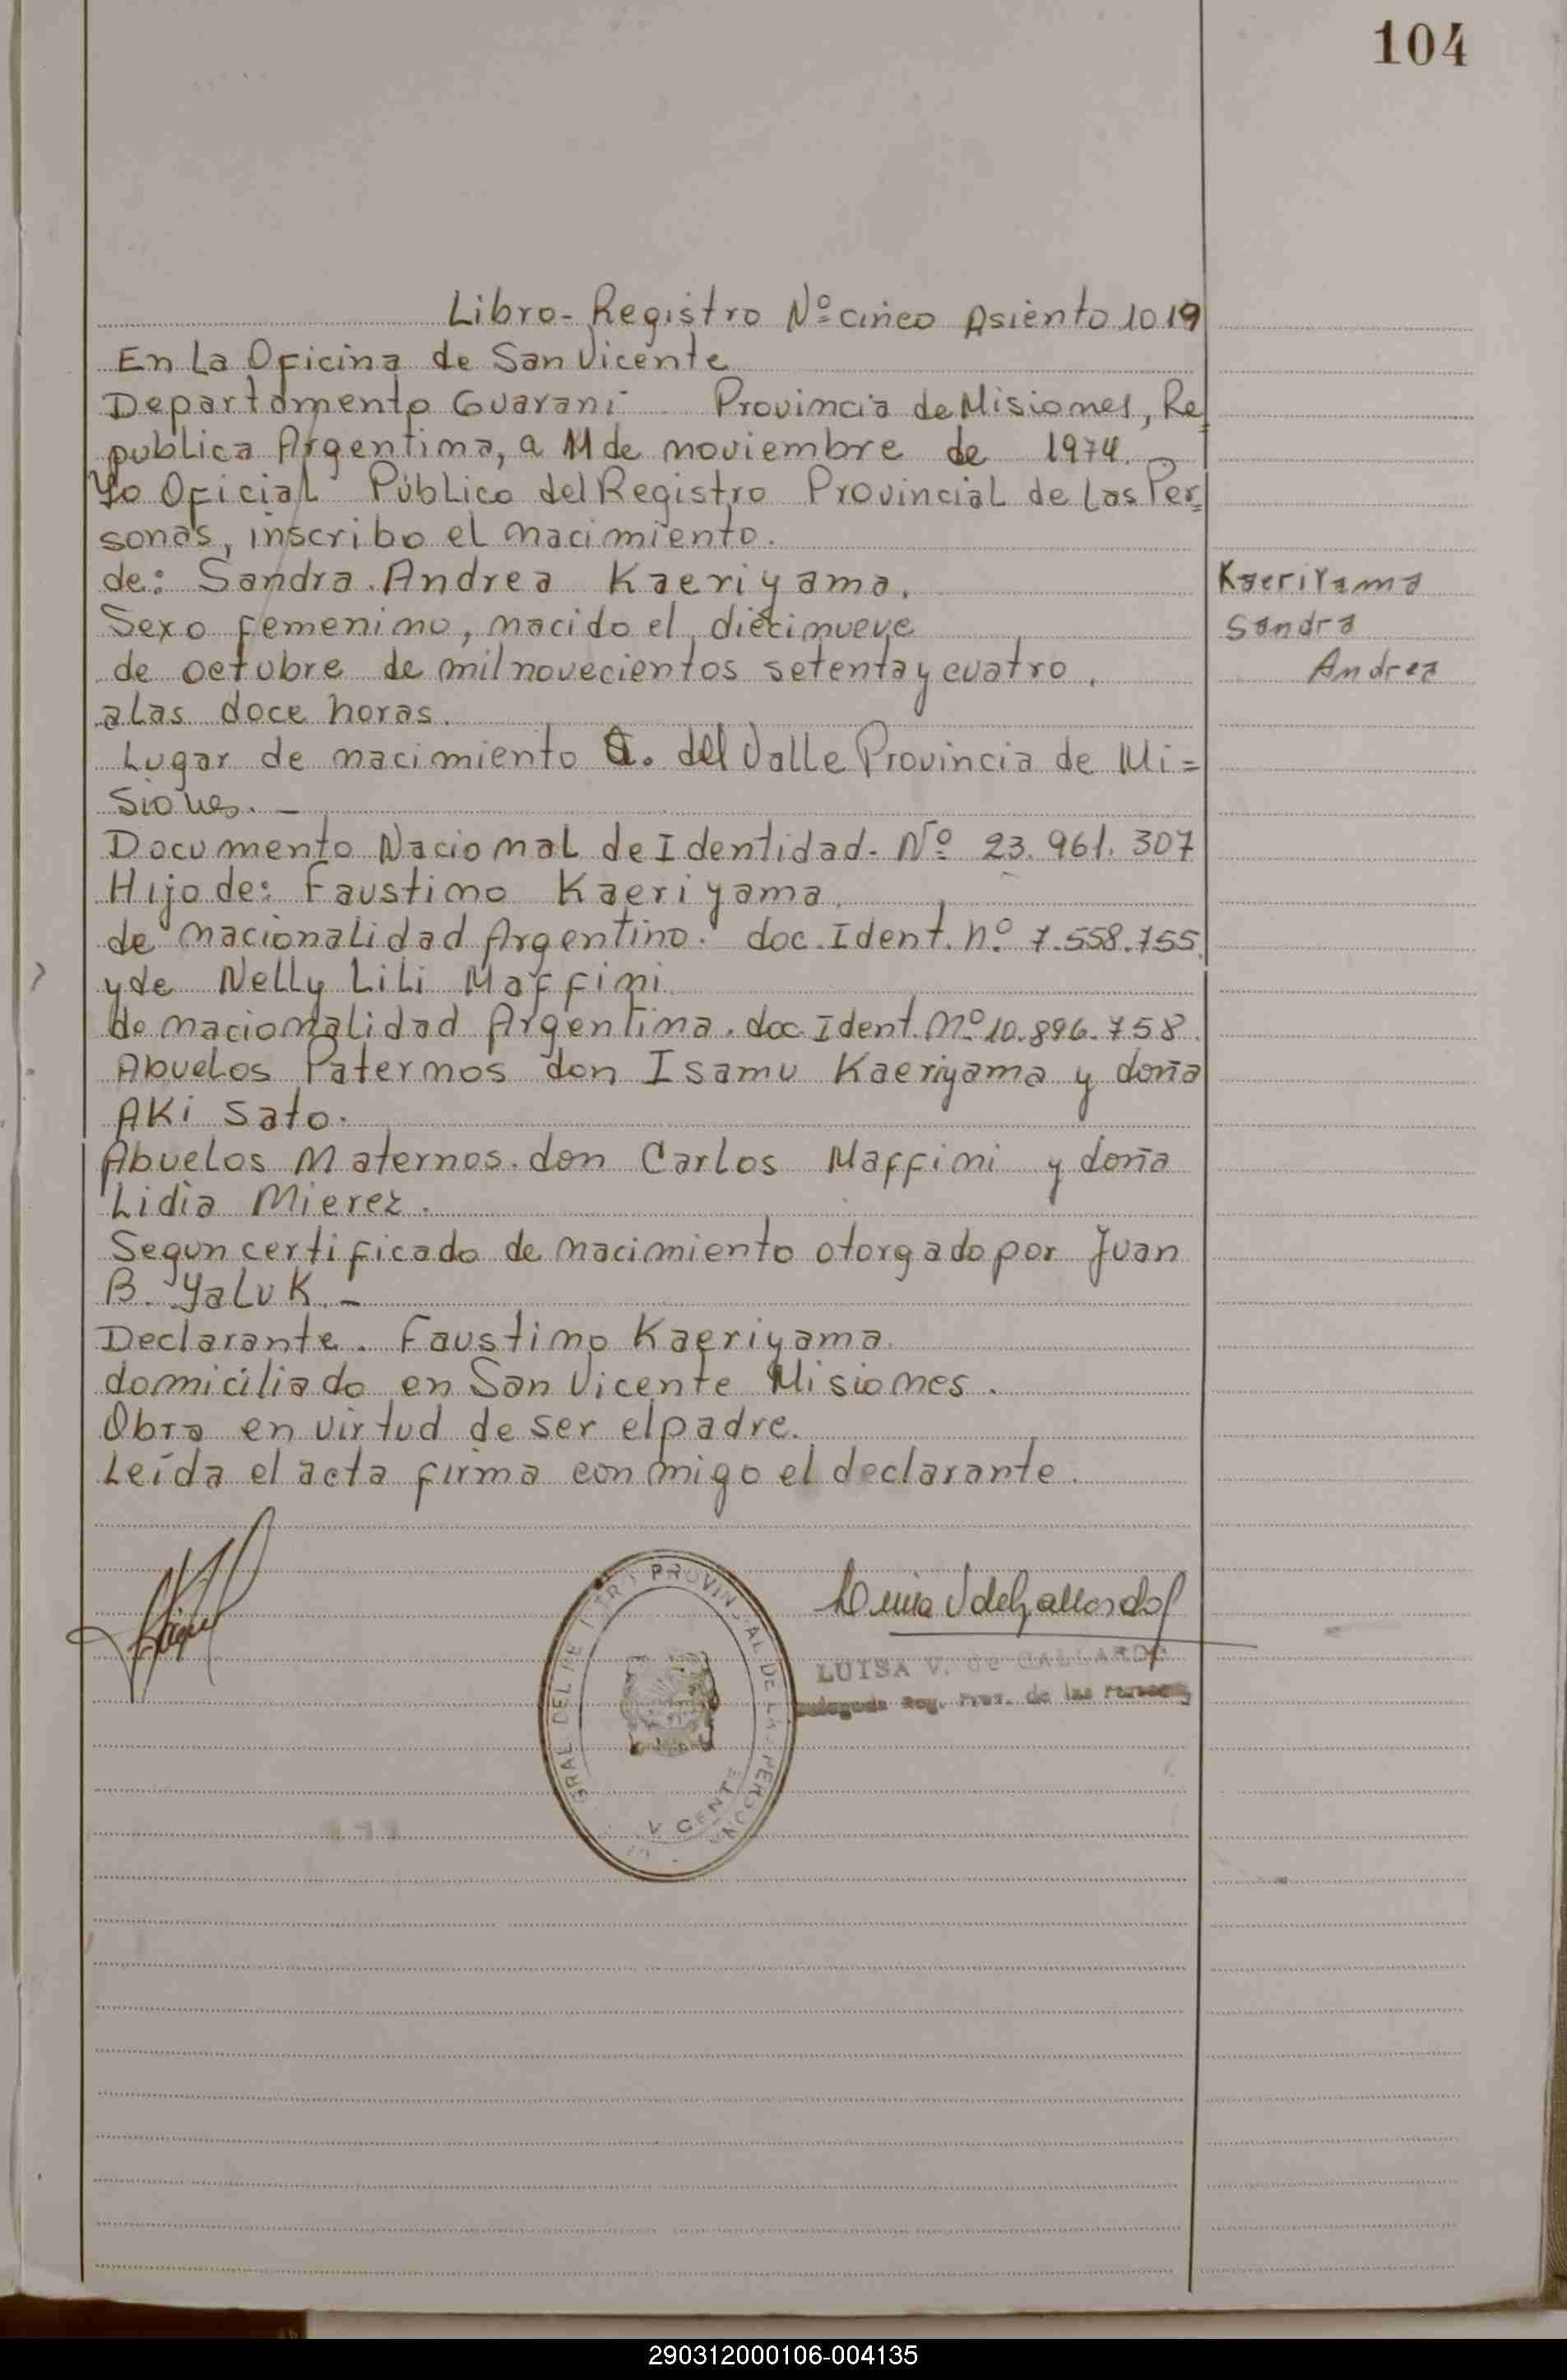 104
Libro-Registro Nº cinco Asiento 1019
En La Oficina de San Vicente
Departamento Guarani Provincia de Misiones, Re=
publica Argentina, a 11 de noviembre de 1974.
Yo Oficial Público del Registro Provincial de Las Per=
sonas, inscribo el nacimiento.
de: Sandra Andrea Kaeriyama.
Kaeriyama
Sexo femenino, nacido el diecinueve
Sandra
de octubre de mil novecientos setenta y cuatro.
Andrea
a las doce horas.
Lugar de nacimiento A. del Valle Provincia de Mi=
siones. —
Documento Nacional de Identidad. Nº 23.961.307
Hijo de: Faustino Kaeriyama.
de nacionalidad Argentino. doc. Ident. nº 7.558.755.
y de Nelly Lili Maffini
de nacionalidad Argentina. doc Ident. nº 10.896.758.
Abuelos Paternos don Isamu Kaeriyama y doña
Aki Sato.
Abuelos Maternos. don Carlos Maffini y doña
Lidia Mierez.
Segun certificado de nacimiento otorgado por Juan
B. Yaluk. —
Declarante. Faustino Kaeriyama.
domiciliado en San Vicente Misiones.
Obra en virtud de ser el padre.
Leída el acta firma conmigo el declarante.
GRAL DEL REGISTRO PROVINCIAL DE LAS PERSONAS
VICENTE
Luisa V de Gallardo
LUISA V. de GALLARDO
Delegada Reg. Prov. de las Personas
290312000106-004135